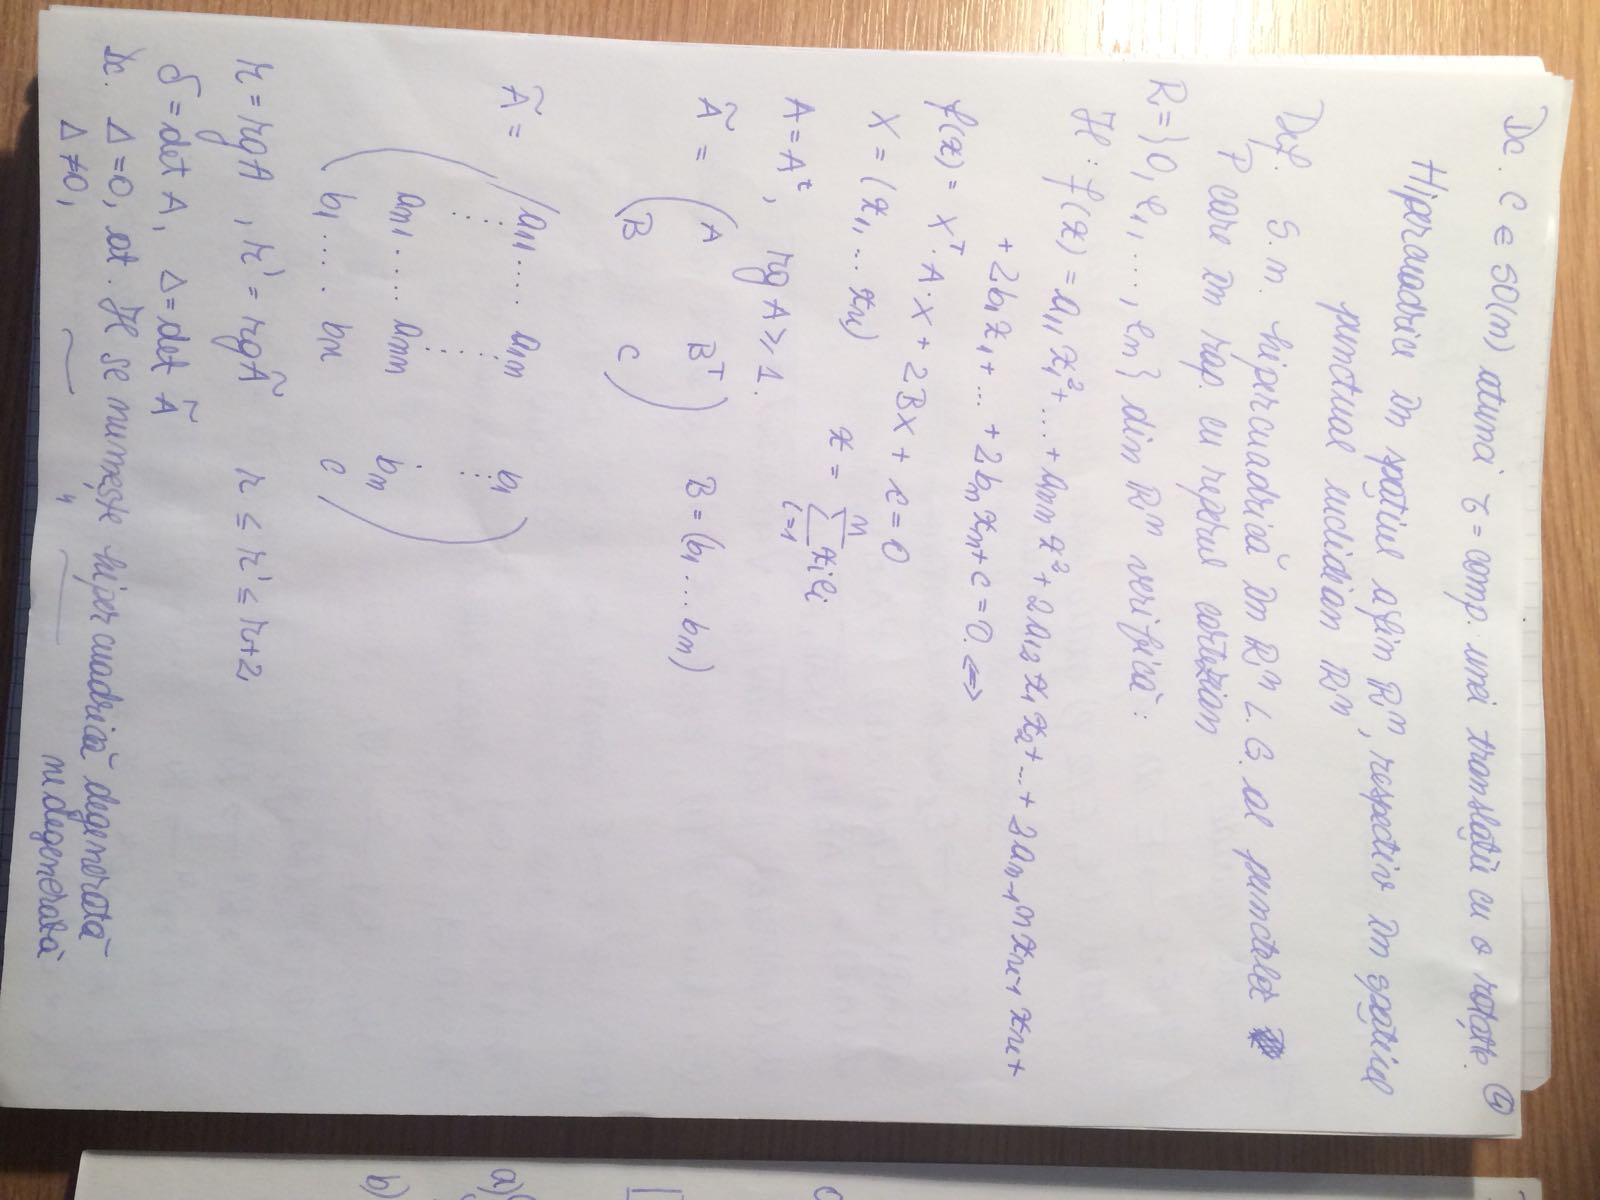 Dc. C ∈ SO(n) atunci τ = comp. unei translații cu o rotație. ④
Hipercuadrice în spațiul afin ℝⁿ, respectiv în spațiul
punctual euclidian ℝⁿ
Def. S.n. hipercuadrică în ℝⁿ L.G. al punctelor
P care în rap. cu reperul cartezian
R = {O, e₁, ..., en} din ℝⁿ verifică:
ℋ : f(x) = a₁₁ x₁² + ... + ann x² + 2a₁₂ x₁ x₂ + ... + 2an-1 n xn-1 xn +
+ 2b₁x₁ + ... + 2bn xn + c = 0 ⇔
f(x) = Xᵀ · A · X + 2BX + c = 0
X = (x₁, ... xn) x = Σⁿᵢ₌₁ xi ei
A = Aᵗ, rg A ≥ 1.
Ã = ( A Bᵀ B = (b₁ ... bn)
B c )
Ã = ( a₁₁ .... a₁n b₁
⋮ ⋮ ⋮
an₁ .... ann bn
b₁ .... bn c )
r = rg A , r' = rg Ã r ≤ r' ≤ r+2
δ = det A, Δ = det Ã
Dc. Δ = 0, at. ℋ se numește hipercuadrică degenerată
Δ ≠ 0, ~ " — nedegenerată
a)
b)